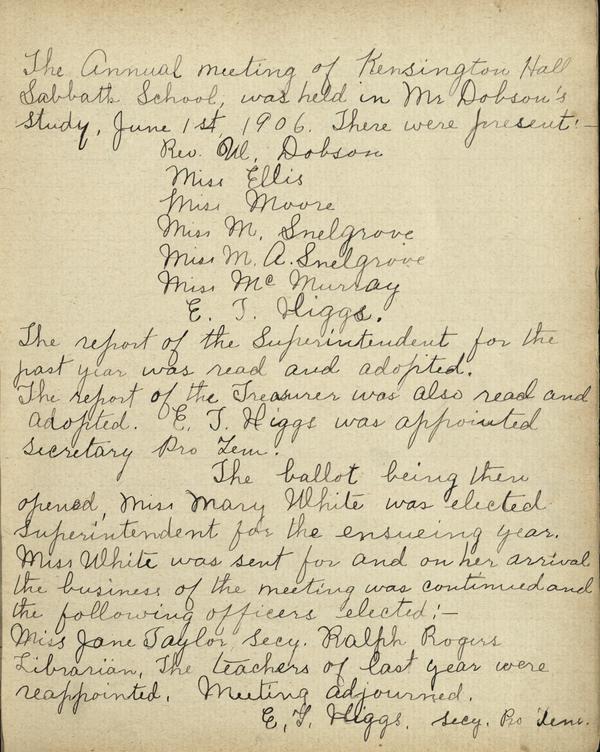 The Annual meeting of Kensington Hall
Sabbath School, was held in Mr Dobson's
study, June 1st, 1906. There were present:-
Rev. W. Dobson
Miss Ellis
Miss Moore
Miss M. Snelgrove
Miss M. A. Snelgrove
Miss Mc Murray
E. T. Higgs.
The report of the Superintendent for the
past year was read and adopted.
The report of the Treasurer was also read and
adopted. E. T. Higgs was appointed
secretary Pro Tem.
The ballot being then
opened, Miss Mary White was elected
Superintendent for the ensueing year.
Miss White was sent for and on her arrival
the business of the meeting was continued and
the following officers elected:-
Miss Jane Taylor, Secy. Ralph Rogers
Librarian. The teachers of last year were
reappointed. Meeting adjourned.
E. T. Higgs. Secy. Pro Tem.